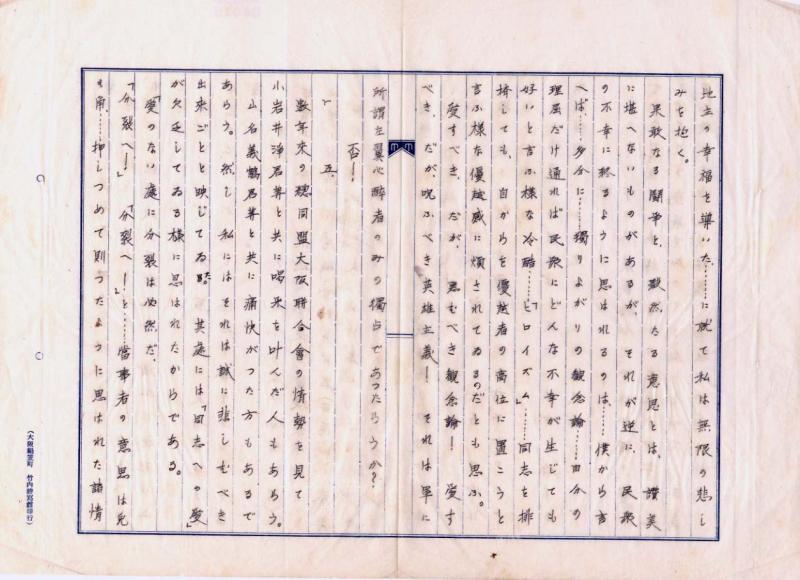 地上の幸福を導いた……に就て私は無限の悲し
みを抱く。
果敢なる闘争と、毅然たる意思とは、讃美
に堪へないものがあるが、それが逆に、民衆
の不幸に終るように思はれるのは、僕から言
へば……多分に……獨りよがりの観念論……自分の
理屈だけ通れば民衆にどんな不幸が生じても
好いと言ふ様な冷酷……「ヒロイズム」……同志を排
擠しても、自からを優越者の高位に置こうと
言ふ様な優越感に煩されてゐるのだとも思ふ。
愛すべき、だが、忌むべき観念論！　愛す
べき、だが、呪ふべき英雄主義！　それは單に
所謂左翼心酔者のみの獨占であつたらうか？
否！
五、
数年来の総同盟大阪聯合會の情勢を見て
小岩井浄君等と共に喝采を叫んだ人もあらう。
山名義鶴君等と共に痛快がつた方もあるで
あらう。然し私にはそれは誠に悲しむべき
出来ごとと映じてゐた。其處には「同志への愛」
が欠乏してゐる様に思はれたからである。
「愛のない處に分裂は必然だ。
「分裂へ！」「分裂へ！」と……當事者の意思は兎
も角、……押しつめて則つたように思はれた諸情
（大阪順慶町　竹内謄寫館印行）